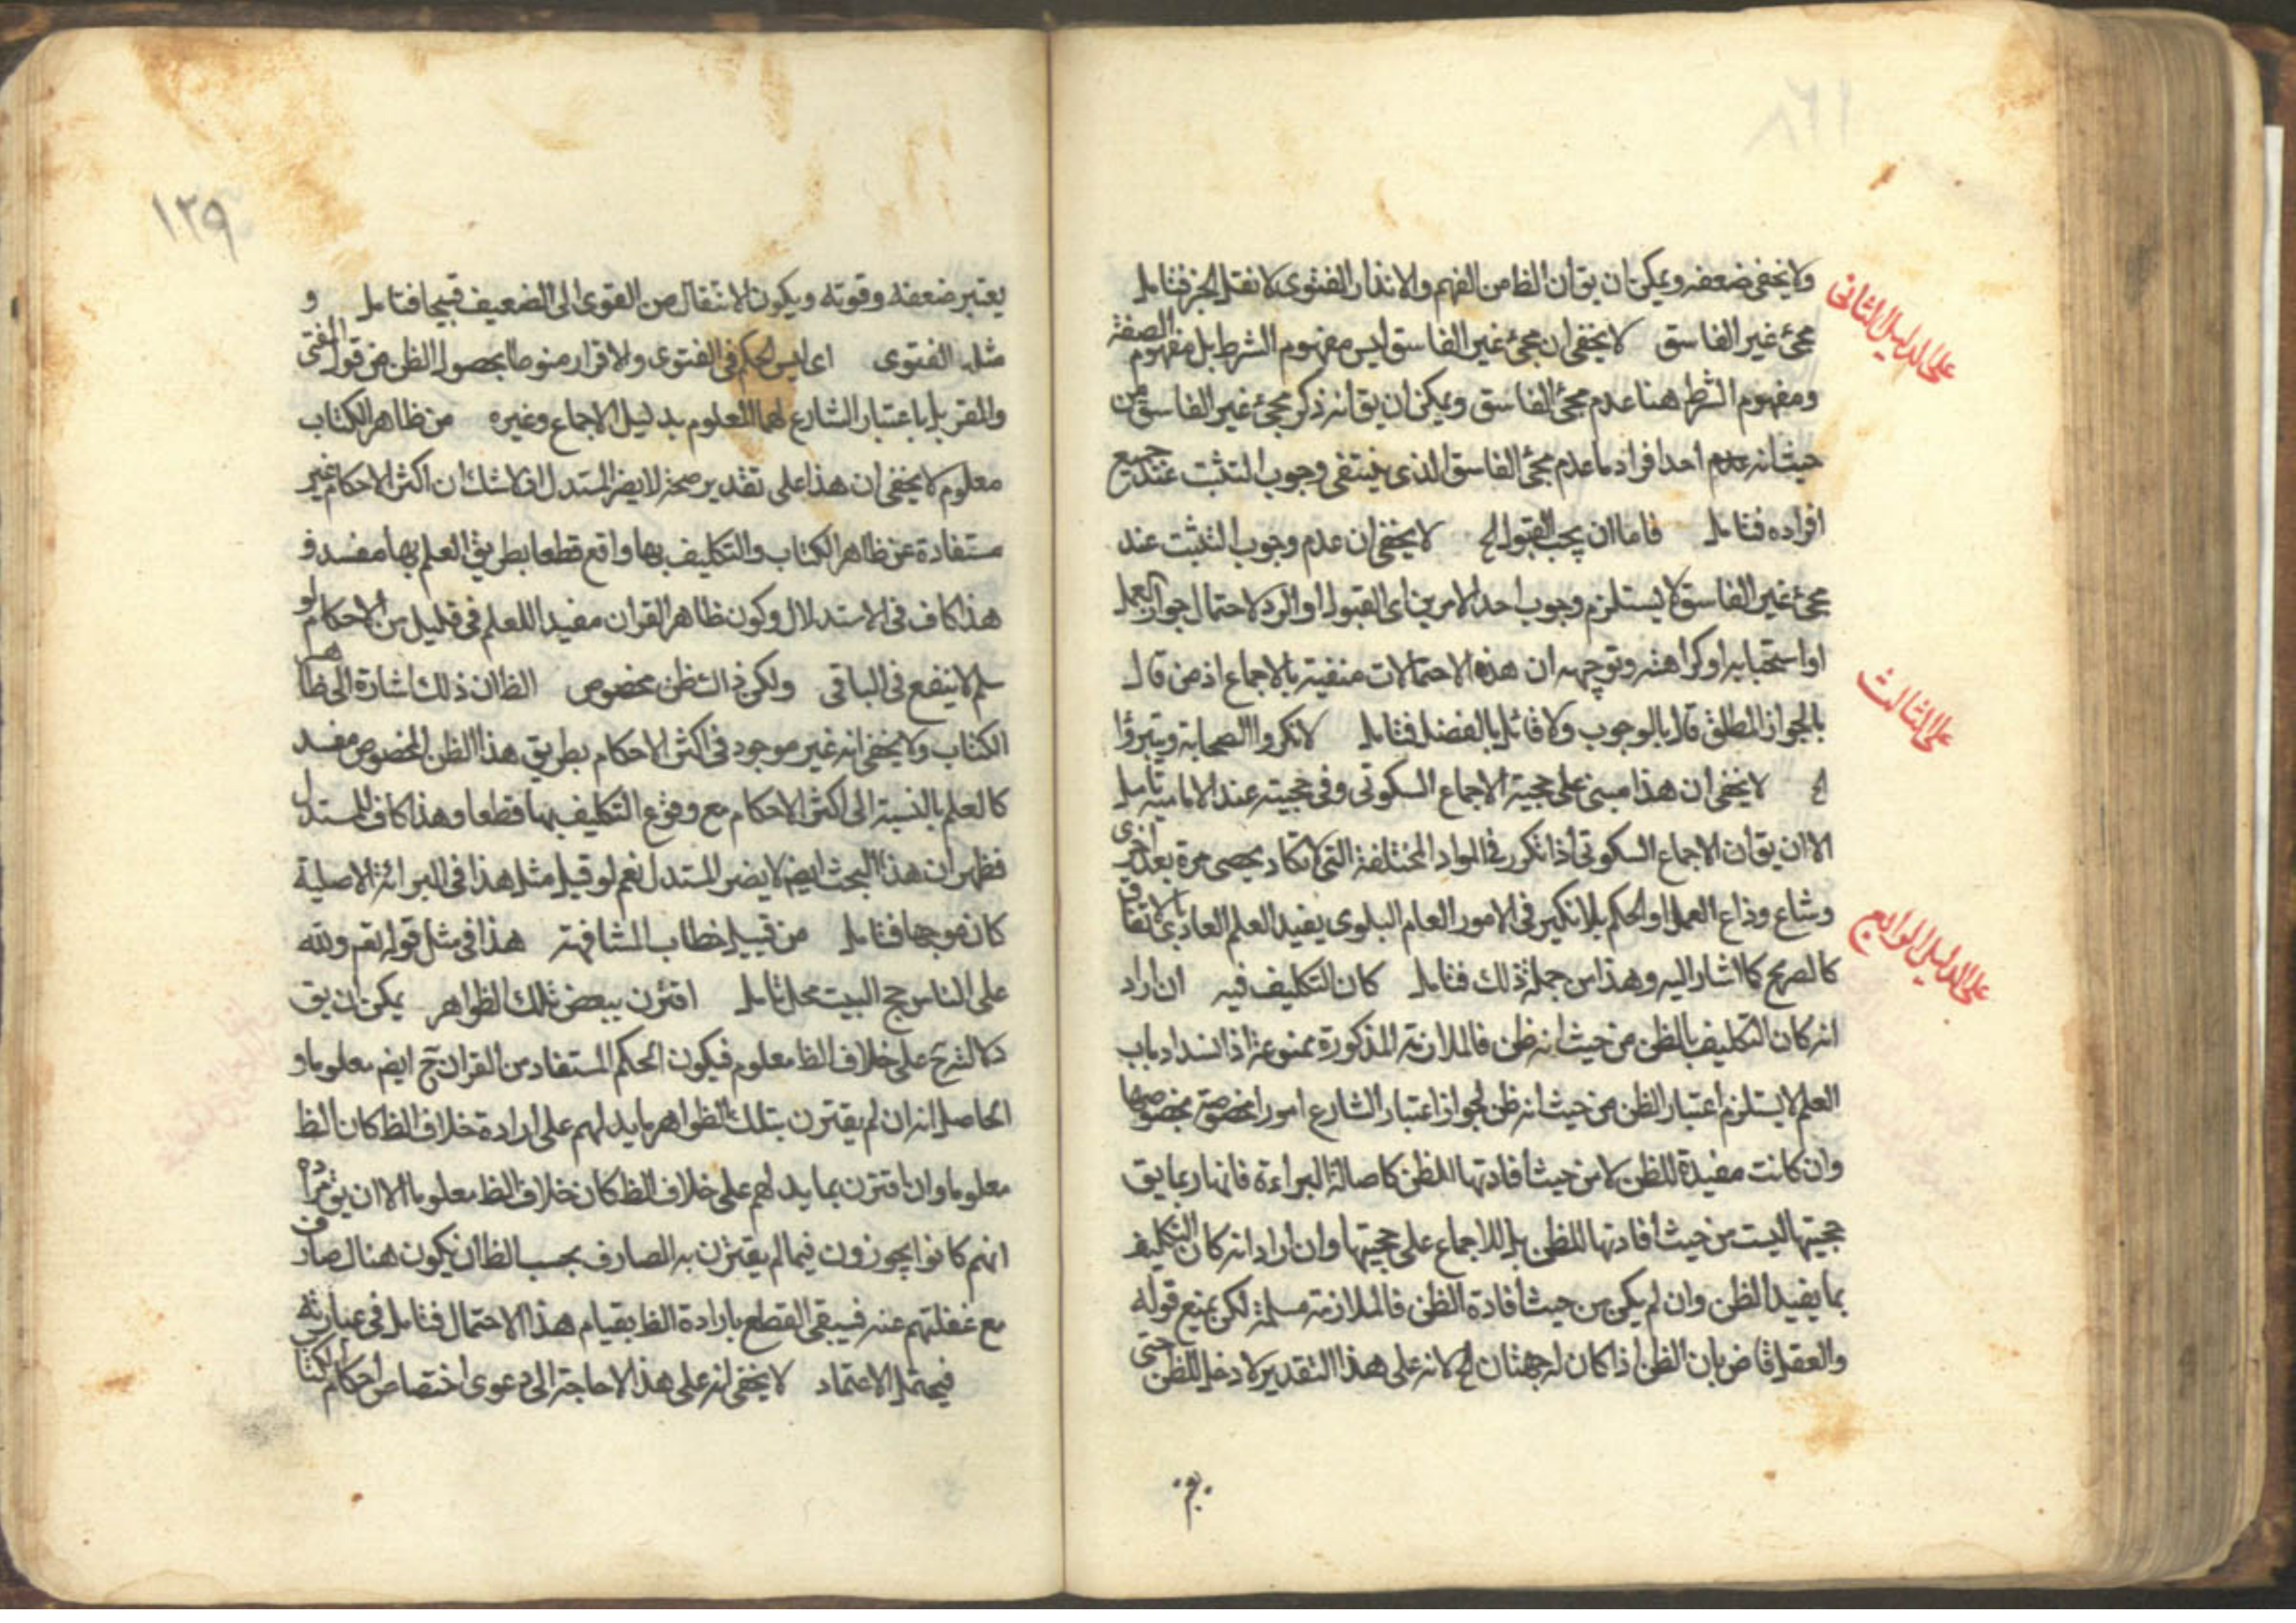 ولا يخفى ضعفه ويمكن ان يق ان الظا من الفهم والانذار الفتوى لا نقل الخبر فتامل
على الدليل الثانى
مجئ غير الفاسق لا يخفى ان مجئ غير الفاسق ليس مفهوم الشرط بل مفهوم الصفة
ومفهوم الشرط هنا عدم مجئ الفاسق ويمكن ان يق انه ذكر مجئ غير الفاسق من
حيث انه احد افراد ما عدم مجئ الفاسق الذى ينتفى وجوب التثبت عند جميع
افراده فتامل فاما ان يجب القبول الخ لا يخفى ان عدم وجوب التثبت عند
مجئ غير الفاسق لا يستلزم وجوب احد الامرين اى القبول او الرد لاحتمال جواز العمل
او استحبابه او كراهته وتوجيهه ان هذه الاحتمالات منفية بالاجماع اذ من قال
على الثالث
بالجواز المطلق قال بالوجوب ولا قائل بالفصل فتامل لانكروا الصحابة ويتبرؤا
الخ لا يخفى ان هذا مبنى على حجية الاجماع السكوتى وفى حجيته عند الامامية تامل
الا ان يق ان الاجماع السكوتى اذا تكرر فى المواد المختلفة التى لا تكاد يحصى مرة بعد اخرى
وشاع وذاع العمل او الحكم بلا نكير فى الامور العام البلوى يفيد العلم العادى بالاتفاق
على الدليل الرابع
كالصريح كما اشار اليه وهذا من جملة ذلك فتامل كان التكليف فيه ان اراد
انه كان التكليف بالظن من حيث انه ظن فالملازمة المذكورة ممنوعة اذ انسداد باب
العلم لا يستلزم اعتبار الظن من حيث انه ظن لجواز اعتبار الشارع امورا مخصوصة بخصوصها
وان كانت مفيدة للظن لا من حيث افادتها للظن كاصالة البراءة فانها ربما يق
حجيتها ليست من حيث افادتها للظن بل للاجماع على حجيتها وان اراد انه كان التكليف
بما يفيد الظن وان لم يكن من حيث افادة الظن فالملازمة مسلمة لكن يمنع قوله
والعقل قاض بان الظن اذا كان له جهتان الخ لانه على هذا التقدير لا دخل للظن حتى
١٢٩
يعتبر ضعفه وقوته ويكون الانتقال من القوى الى الضعيف قبيحا فتامل و
مثل الفتوى اى ليس الحكم فى الفتوى والاقرار منوطا بحصول الظن من قول المفتى
والمقر بل باعتبار الشارع لهما المعلوم بدليل الاجماع وغيره من ظاهر الكتاب
معلوم لا يخفى ان هذا على تقدير صحته لا يضر المستدل اذ لا شك ان اكثر الاحكام غير
مستفادة عن ظاهر الكتاب والتكليف بها واقع قطعا بطريق العلم بها مفسد و
هذا كاف فى الاستدلال وكون ظاهر القران مفيدا للعلم فى قليل من الاحكام لو
سلم لا ينفع فى الباقى ولكن ذلك ظن مخصوص الظا ان ذلك اشارة الى ظاهر
الكتاب ولا يخفى انه غير موجود فى اكثر الاحكام بطريق هذا الظن المخصوص مفسد
كالعلم بالنسبة الى اكثر الاحكام مع وقوع التكليف بها قطعا وهذا كاف للمستدل
فظهر ان هذا البحث ايضا لا يضر المستدل نعم لو قيل مثل هذا فى البرائة الاصلية
كان موجها فتامل من قبيل خطاب المشافهة هذا فى مثل قوله تعم ولله
على الناس حج البيت محل تامل اقترن ببعض تلك الظواهر يمكن ان يق
على خلاف الظا معلوم فيكون الحكم المستفاد من القران ح ايضم معلوما و
الحاصل انه ان لم يقترن بتلك الظواهر ما يدلهم على ارادة خلاف الظا كان الظا
معلوما وان اقترن بما يدلهم على خلاف الظا كان خلاف الظا معلوما الا ان يق مراده
انهم كانوا يجوزون فيما لم يقترن به الصارف بحسب الظا ان يكون هناك صارف
مع غفلتهم عنه فيبقى القطع بارادة الظا بقيام هذا الاحتمال فتامل فى عبارته
فيحتمل الاعتماد لا يخفى انه على هذا لا حاجة الى دعوى اختصاص احكام الكتاب